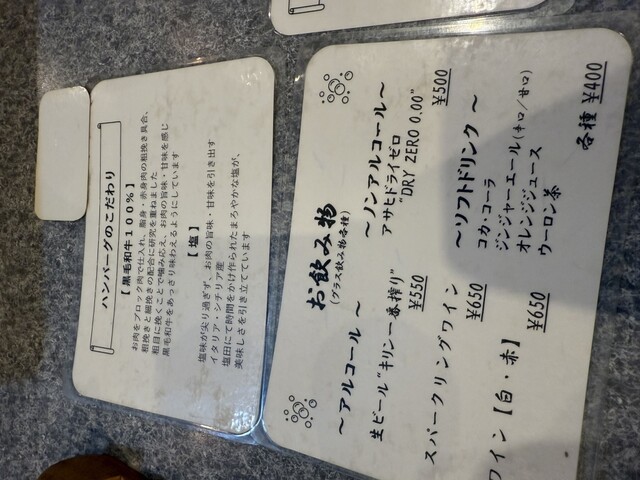 ハンバーグのこだわり
【黒毛和牛100%】
お肉をブロック肉で仕入れ、脂身・赤身肉の粗挽き具合、
粗挽きと細挽きの配合に研究を重ねました
粗目に挽くことで噛み応え、お肉の旨味・甘味を感じ
黒毛和牛をあっさり味わえるようにしています
【塩】
塩味が尖り過ぎず、お肉の旨味・甘味を引き出す
イタリア・シチリア産
塩田にて時間をかけ作られたまろやかな塩が、
美味しさを引き立てています
お飲み物
(グラス飲み物各種)
～アルコール～
生ビール“キリン一番搾り”
¥550
スパークリングワイン
¥650
ワイン【白・赤】
¥650
～ノンアルコール～
アサヒドライゼロ
“DRY ZERO 0.00”
¥500
～ソフトドリンク～
コカ・コーラ
ジンジャーエール(辛口/甘口)
オレンジジュース
ウーロン茶
各種 ¥400